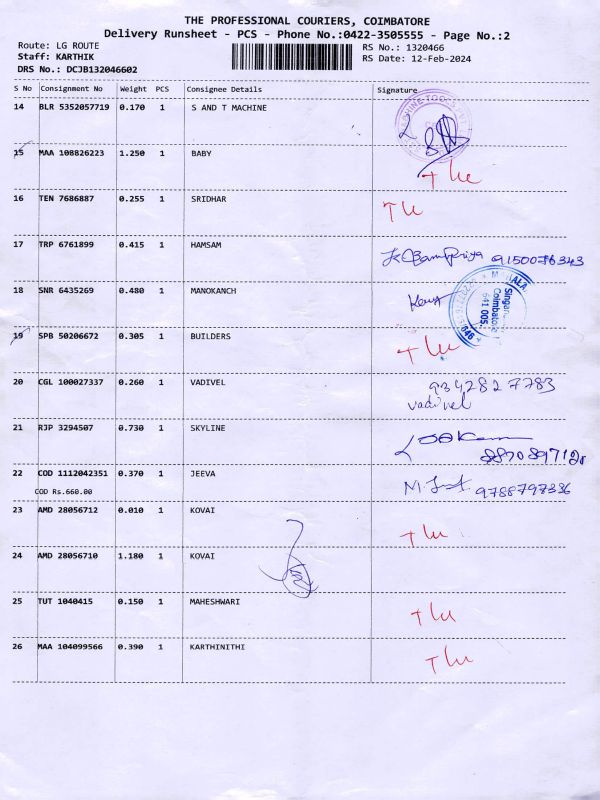 THE PROFESSIONAL COURIERS, COIMBATORE
Delivery Runsheet - PCS - Phone No.:0422-3505555 - Page No.:2
Route: LG ROUTE RS No.: 1320466
Staff: KARTHIK RS Date: 12-Feb-2024
DRS No.: DCJB132046602
S No Consignment No Weight PCS Consignee Details Signature
14 BLR 5352057719 0.170 1 S AND T MACHINE
15 MAA 108826223 1.250 1 BABY
16 TEN 7686887 0.255 1 SRIDHAR
17 TRP 6761899 0.415 1 HAMSAM
18 SNR 6435269 0.480 1 MANOKANCH
Coimbatore
641 005.
19 SPB 50206672 0.305 1 BUILDERS
20 CGL 100027337 0.260 1 VADIVEL 9342827783
vadivel
21 RJP 3294507 0.730 1 SKYLINE
22 COD 1112042351 0.370 1 JEEVA 9788797336
COD Rs.660.00
23 AMD 28056712 0.010 1 KOVAI
24 AMD 28056710 1.180 1 KOVAI
25 TUT 1040415 0.150 1 MAHESHWARI
26 MAA 104099566 0.390 1 KARTHINITHI